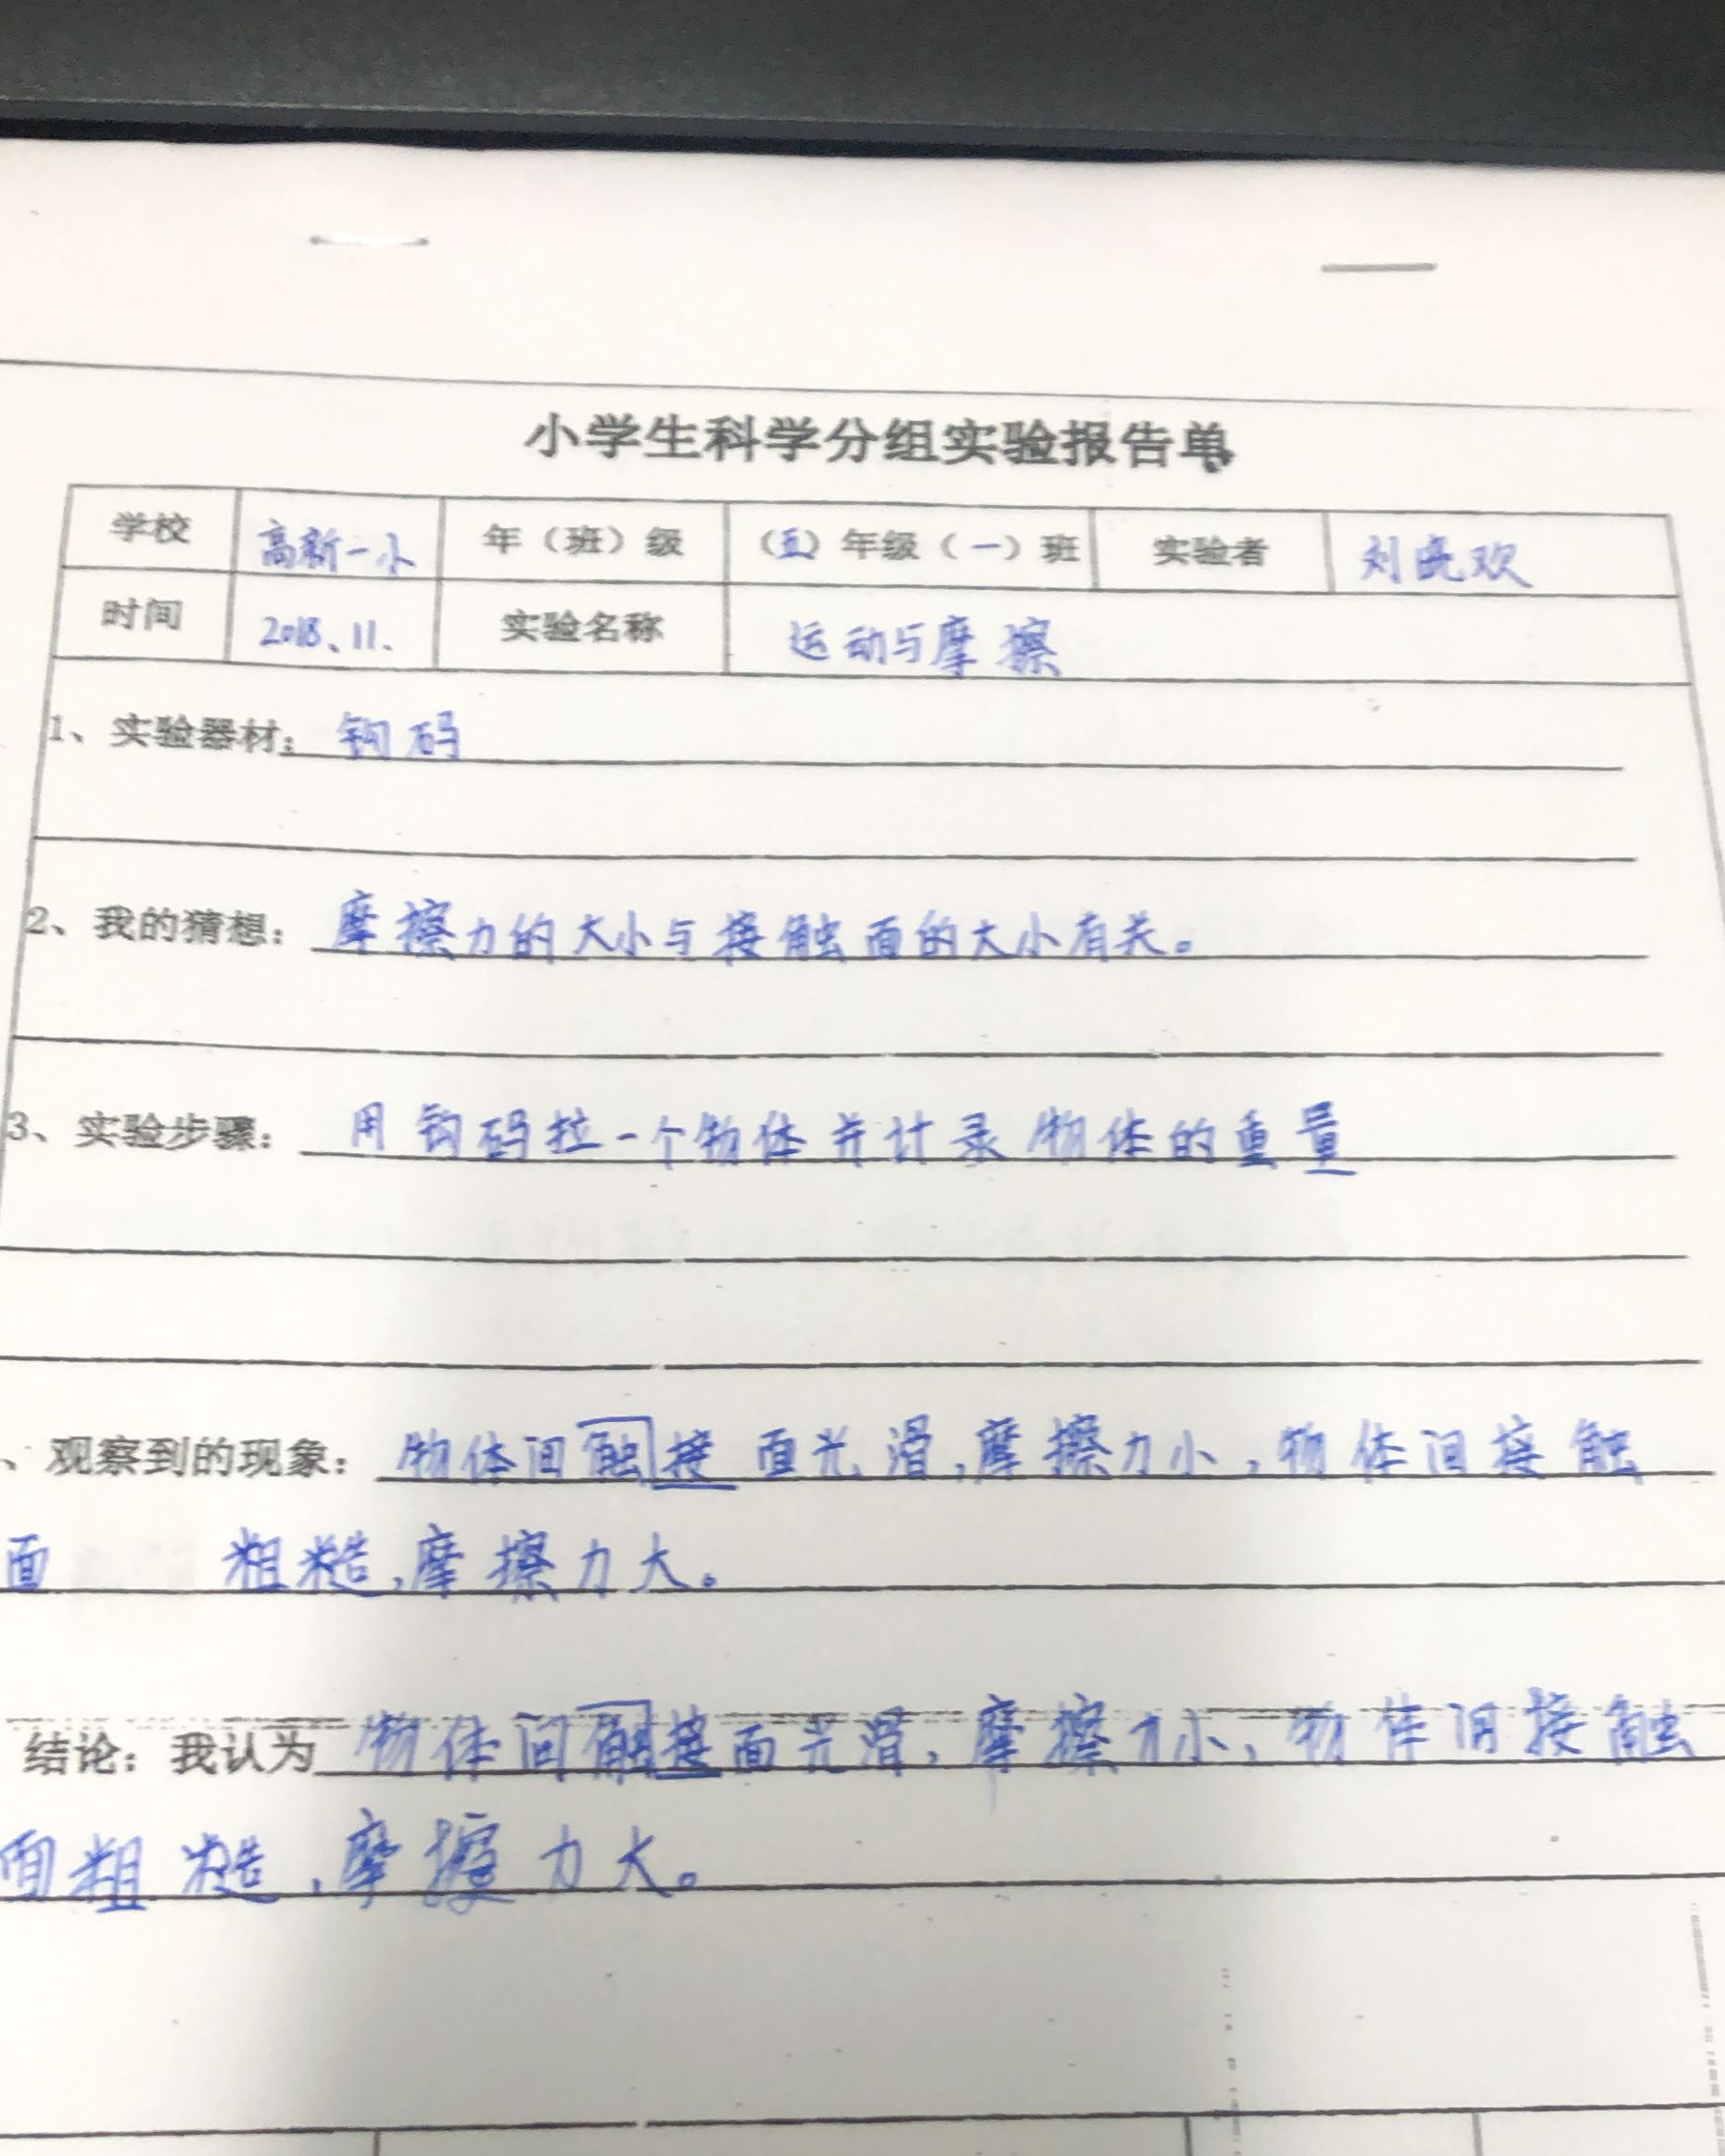 小学生科学分组实验报告单
学校 高新一小 年（班）级 （五）年级（一）班 实验者 刘晓欢
时间 2018、11. 实验名称 运动与摩擦
1、实验器材：钩码
2、我的猜想：摩擦力的大小与接触面的大小有关。
3、实验步骤：用钩码拉一个物体并计录物体的重量
、观察到的现象：物体间触接面光滑，摩擦力小，物体间接触
面 粗糙，摩擦力大。
结论：我认为物体间触接面光滑，摩擦力小，物体间接触
面粗糙，摩擦力大。